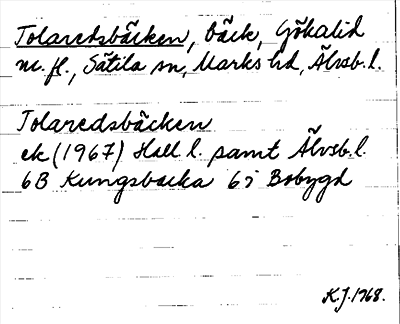 Tolaredsbäcken, bäck, Gökalid
m. fl., Sätila sn, Marks hd, Älvsb. l.
Tolaredsbäcken
ek (1967) Hall l. samt Älvsb. l.
6B Kungsbacka 6j Bobygd
K.J. 1968.